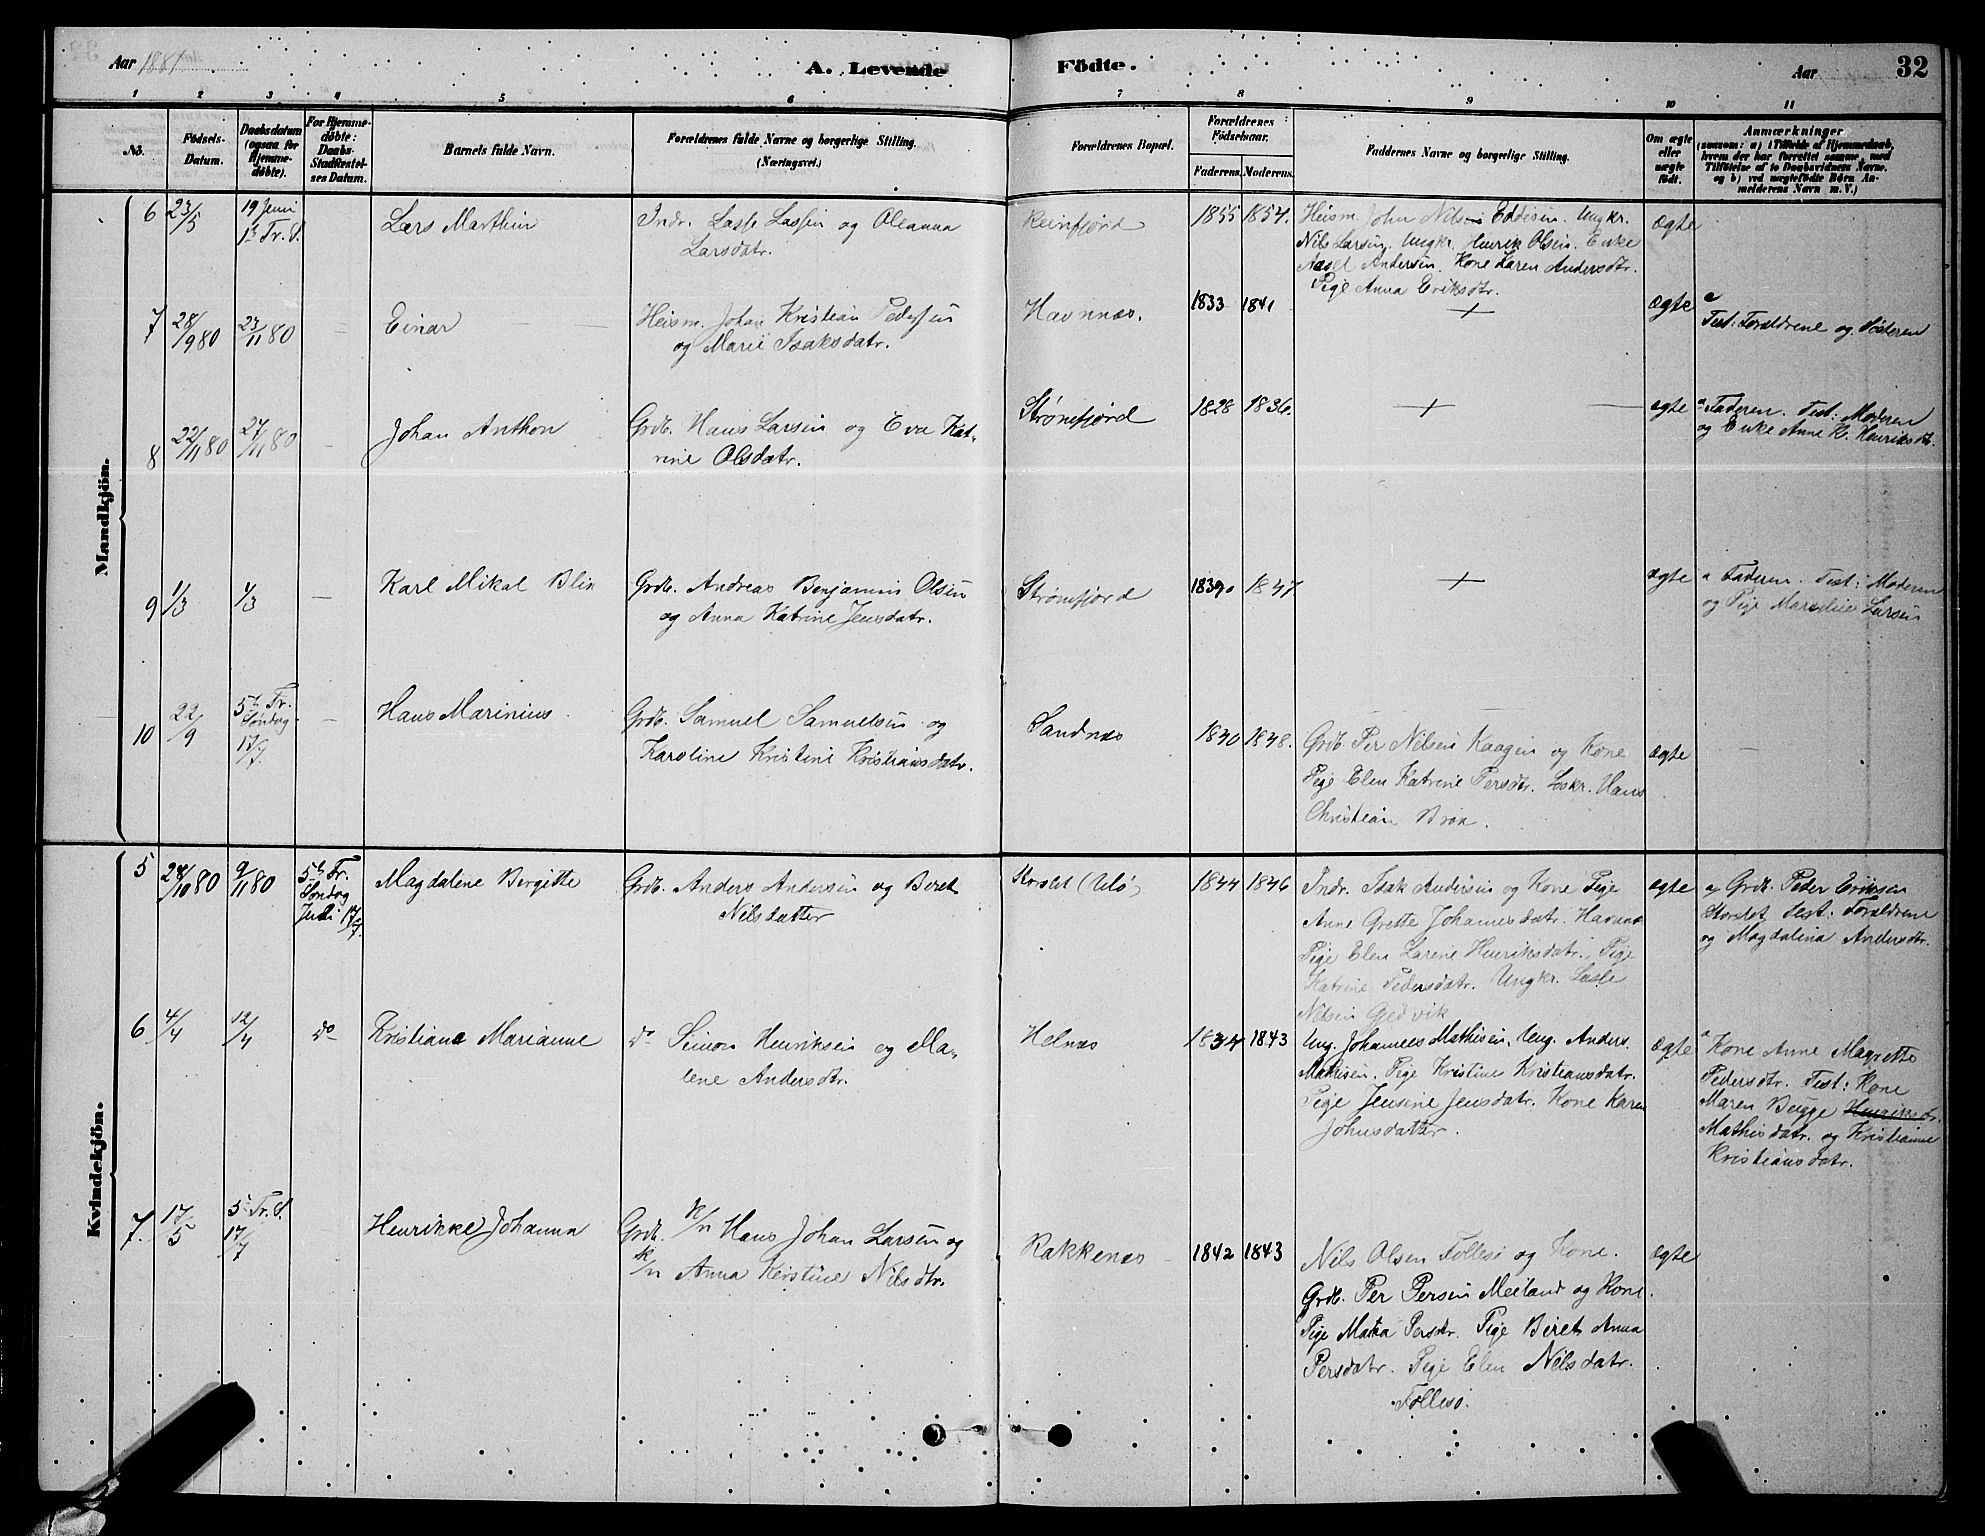 Aar 1881
A. Levende
Födte.
Aar
32
1 2 3 4 5 6 7 8 9 10 11
No.
Födsels-
Datum.
Daabsdatum
(ogsaa for
Hjemme-
døbte).
For Hjemme-
döbte:
Daabs-
Stadfæstel-
ses Datum.
Barnets fulde Navn.
Forældrenes fulde Navne og borgerlige Stilling.
(Næringsvei.)
Forældrenes Bopæl.
Forældrenes
Födselsaar.
Faderens. Moderens.
Faddernes Navne og borgerlige Stilling.
Om ægte
eller
uægte
födt.
Anmærkninger
(saasom: a) i Tilfælde af Hjemmedaab,
hvem der har forrettet samme, med
Tilføielse af to Daabsvidners Navne.
og b) ved uægtefødte Børn An-
melderens Navn m. V.)
Mandkjön.
6 23/5
19 Juni
1ste Tr. S.
Lars Marthin
Indr. Lasse Lassen og Oleanna
Larsdatr.
Reinfjord
1855 1854.
Heism. John Nilsen Eddisen. Ungkr.
Nils Larsen. Ungkr. Henrik Olsen. Enke
Andersen. Kone Karen Andersdtr.
Pige Anna Eriksdtr.
Ægte
7 28/9 80 23/11 80 — Einar
Heism. Johan Kristian Pedersen
og Marie Isaksdatr.
Havnnæs.
1833 1841
+
Ægte
a
Test: Forældrene og Søsteren
8 22/11 80 27/11 80 — Johan Anthon
Grdb. Hans Larsen og Eva Kat-
rine Olsdatr.
Strømfjord
1828 1836.
+
Ægte
a Faderen. Test: Moderen
og Enke Anne K. Henriksdtr.
9 1/3 4/3 — Karl Mikal Blix
Grdb. Andreas Benjamin Olsen
og Anna Katrine Jensdatr.
Strømfjord
1839 1847
+
Ægte
a Faderen. Test: Moderen
og Pige Larsen
10 22/9
5te Tr.
Søndag
17/7.
—
Hans Marinius
Grdb. Samuel Samuelsen og
Karoline Kristine Kristiansdatr.
Sandnæs
1840 1848.
Grdb. Per Nilsen Kaagen og Kone
Pige Elen Katrine Persdtr. Løskr. Hans
Christian Brox.
Ægte
—
Kvindekjön.
5 28/10 80 9/11 80
5te Tr.
Søndag
Juli 17/7.
Magdalene Bergitte
Grdb. Anders Andersen og Beret
Nilsdatter
(Uløe)
1844 1846
Indr. Isak Andersen og Kone Pige
Anne Grethe Johannesdatr. Havnnæs
Pige Elen Larene Henriksdatr. Pige
Katrine Pedersdatr. Ungkr. Lasse
Nilsen Gjedvik
Ægte
a Grdb. Peder Eriksen
Storslet Test: Forældrene
og Magdalina Andersdtr.
6 4/4 12/4 do Kristiane Marianne
do Simon Henriksen og Ma-
lene Andersdtr.
Helnæs
1834 1843
Ung. Johannes Mathisen, Ung. Anders
Mathisen. Pige Kristine Kristiansdatr.
Pige Jensine Jensdatr. Kone Karen
Johnsdatter.
Ægte
a
Kone Anne Magrette
Pedersdtr. Test: Kone
Maren Bugge
Mathisdatr. og Kristianne
Kristiansdatr.
7. 17/5
5te Tr. S.
17/7
Henrikke Johanna
Grdb. k/n Hans Johan Larsen og
k/n Anna Kerstine Nilsdtr.
Rakkenæs
1842 1843
Nils Olsen Follesø og Kone.
Grdb. Per Persen Meiland og Kone.
Pige Matha Persdtr. Pige Beret Anna
Persdatr. Pige Elen Nilsdatr.
Follesø.
Ægte